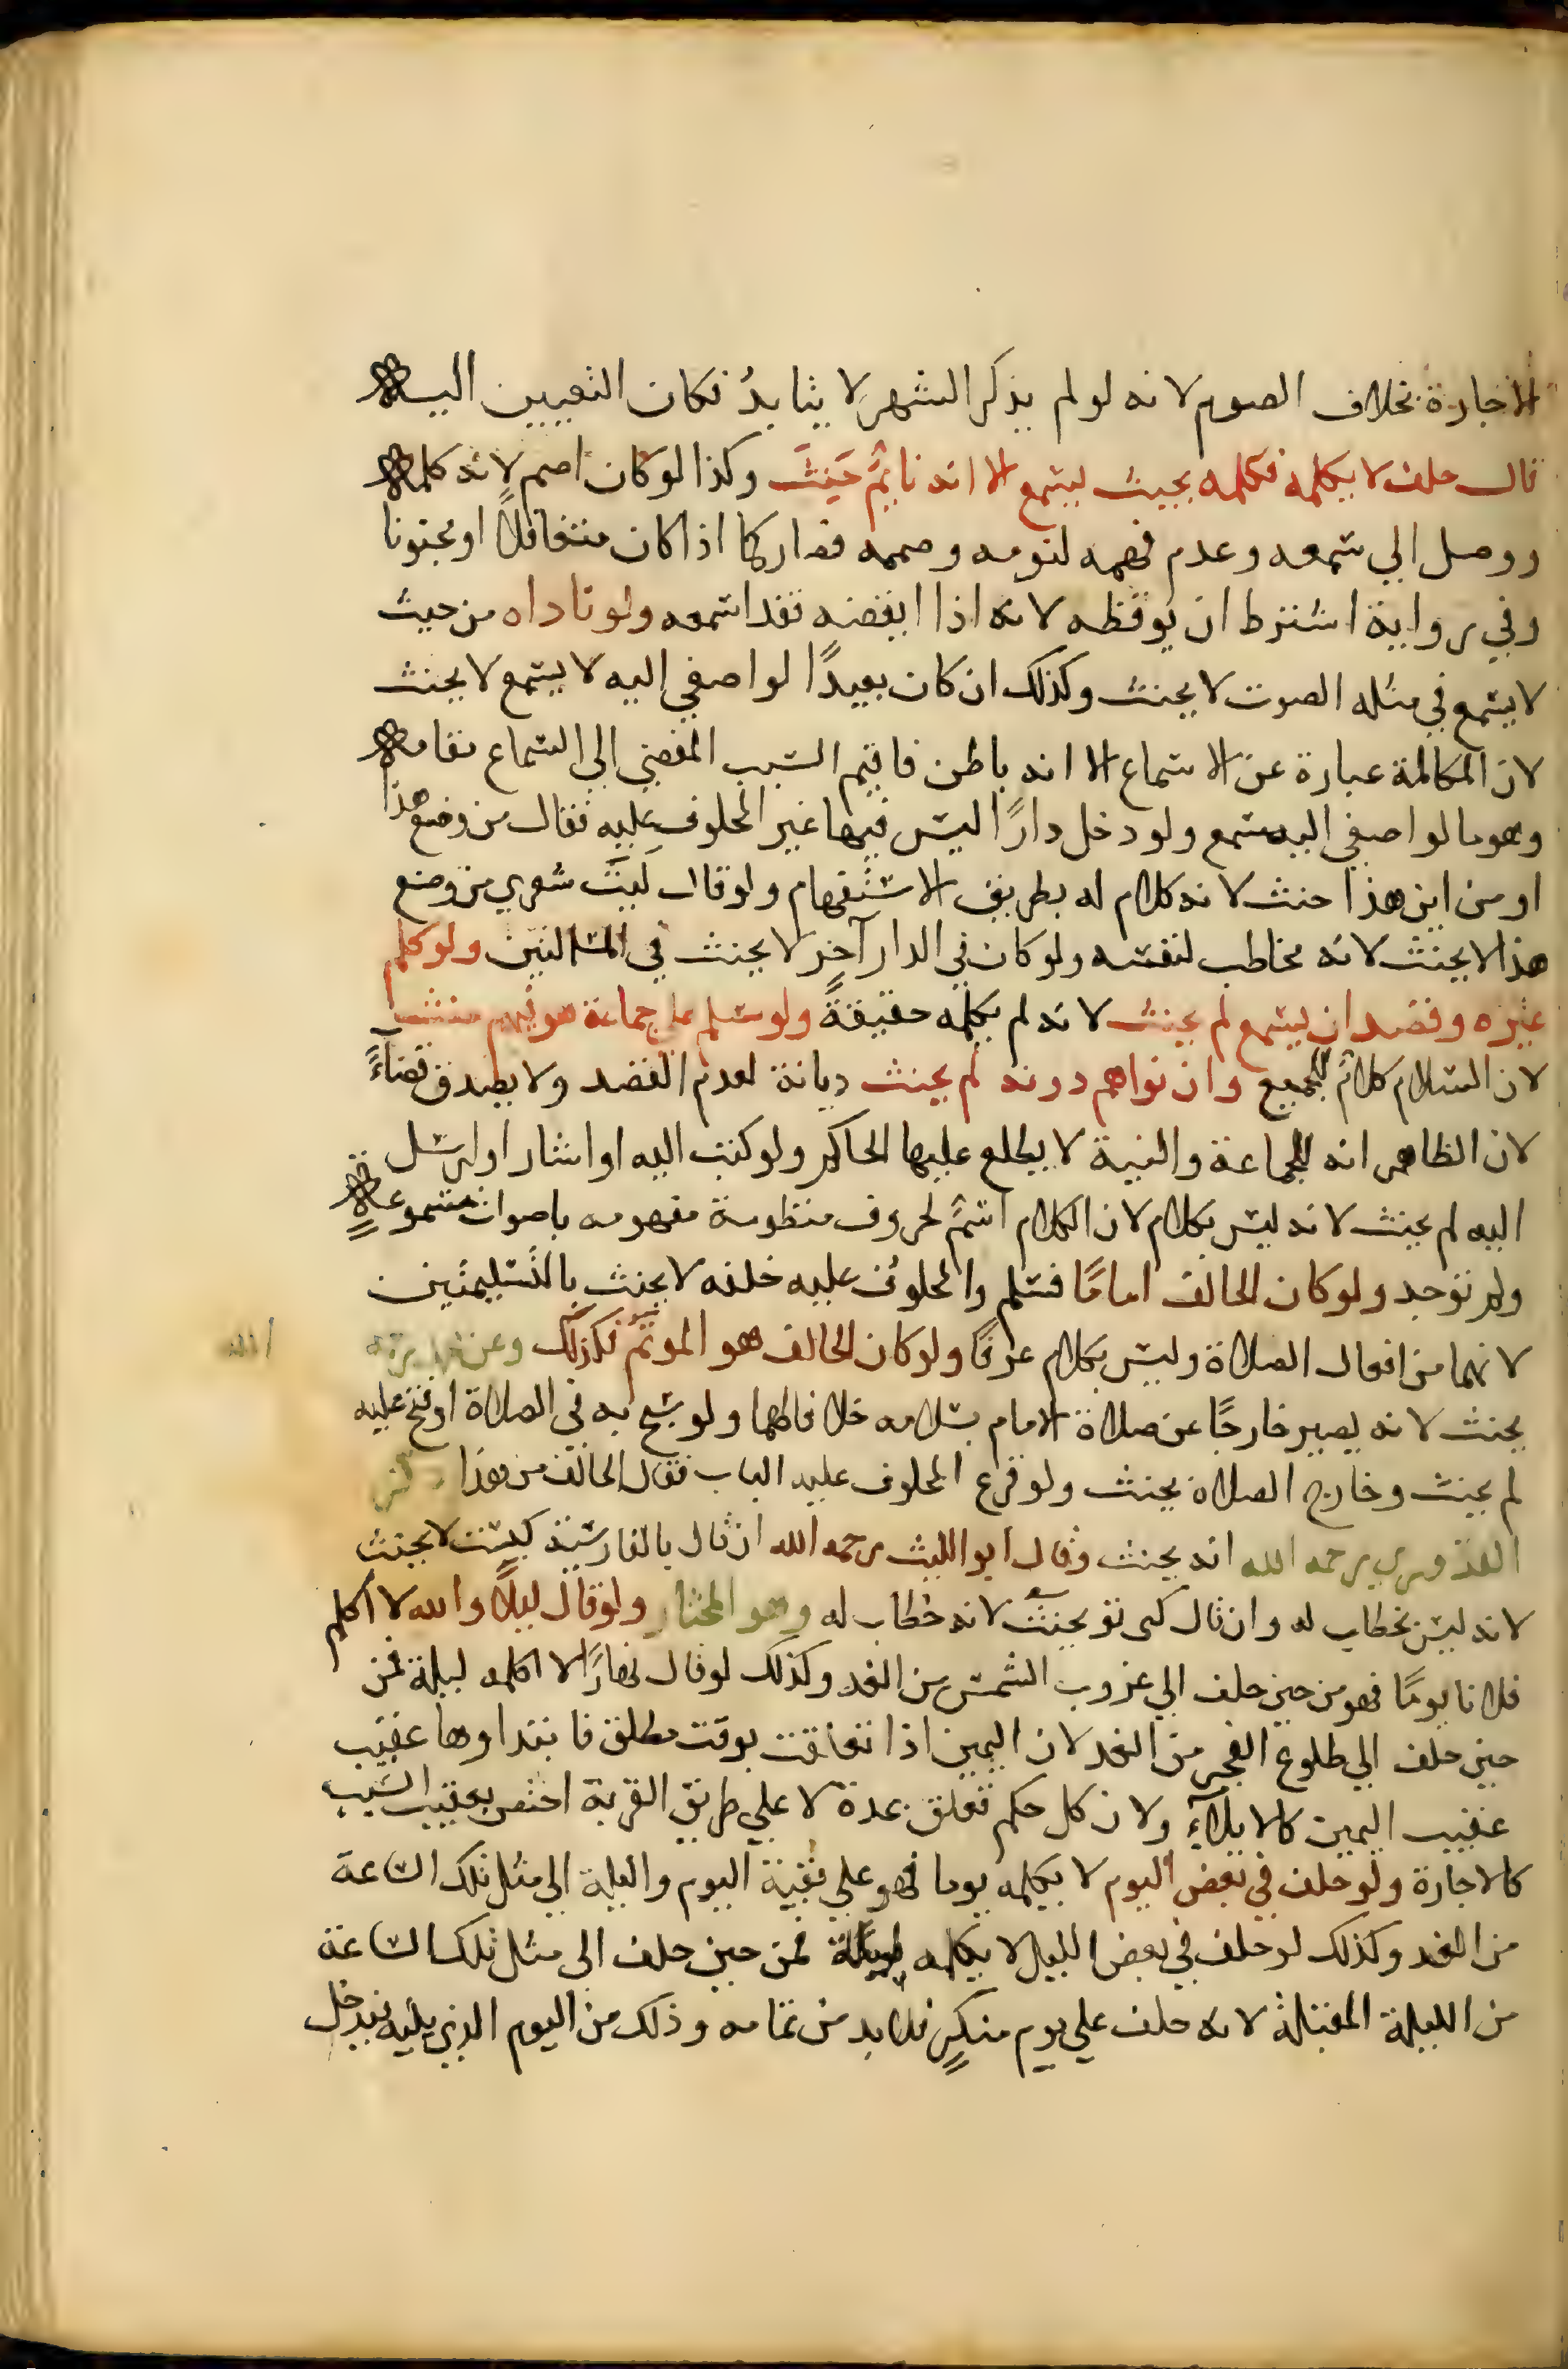 الاجارة بخلاف الصوم لانه لو لم يذكر الشهر لا يتابد فكان التعيين اليه
قال حلف لا يكلمه فكلمه بحيث يسمع الا انه نايمٌ حَنِثَ وكذا لو كان اصم لانه كلمه
ووصل الي سمعه وعدم فهمه لنومه وصممه فصار كما اذا كان متغافلاً او مجنونا
وفي رواية اشترط ان يوقظه لانه اذا ايقضه فقد اسمعه ولو ناداه من حيث
لا يسمع في مثله الصوت لا يحنث وكذلك ان كان بعيدًا لو اصغي اليه لا يسمع لا يحنث
لان المكالمة عبارة عن الاستماع الا انه باطن فاقيم السبب المفضي الي السماع مقامه
وهو ما لو اصغي اليه سمع ولو دخل دارًا ليس فيها غير المحلوف عليه فقال من وضع هذا
او من اين هذا حنث لانه كلام له بطريق الاستفهام ولو قال ليتَ شعري من وضع
هذا لا يحنث لانه مخاطب لنفسه ولو كان في الدار آخر لا يحنث في المسالتين ولو كلم
غيره وقصد ان يسمع لم يحنث لانه لم يكلمه حقيقةً ولو سلم علي جماعة هو فيهم حنث
لان السلام كلامٌ للجميع وان نواهم دونه لم يحنث ديانة لعدم القصد ولا يصدق قضاءً
لان الظاهر انه للجماعة والنية لا يطلع عليها الحاكم ولو كتب اليه او اشار او ارسل
اليه لم يحنث لانه ليس بكلام لان الكلام اسمٌ لحروف منظومة مفهومه باصوات مسموعةٍ
ولم توجد ولو كان الحالف امامًا فسلم والمحلوف عليه خلفه لا يحنث بالتسليمتين
لانهما من افعال الصلاة وليس بكلام عرفًا ولو كان الحالف هو الموتمُّ فكذلك وعن
يحنث لانه يصير خارجًا عن صلاة الامام بسلامه خلافا لهما ولو سبح به في الصلاة او فتح عليه
لم يحنث وخارج الصلاة يحنث ولو قرع المحلوف عليه الباب فقال الحالف من هذا ذكر
القدوري رحمه الله انه يحنث وقال ابو الليث رحمه الله ان قال بالفارسية كيست لا يحنث
لانه ليس بخطاب له وان قال كى تو يحنث لانه خطاب له وهو المختار ولو قال ليلاً والله لا اكلم
فلانا يومًا فهو من حين حلف الي غروب الشمس من الغد وكذلك لو قال نهارًا لا اكلمه ليلة فمن
حين حلف الي طلوع الفجر من الغد لان اليمين اذا تعلقت بوقت مطلق فابتداوها عقيب
عقيب اليمين كالايلاءِ ولان كل حكم تعلق بمدة لا علي طريق القربة اختص بعقيب السبب
كالاجارة ولو حلف في بعض اليوم لا يكلمه يوما فهو علي بقية اليوم والليلة الي مثل تلك الساعة
من الغد وكذلك لو حلف في بعض الليل لا يكلمه ليلة فمن حين حلف الي مثل تلك الساعة
من الليلة المقبلة لانه حلف علي يوم منكرٍ فلا بد من تمامه وذلك من اليوم الذي يليه فيدخل